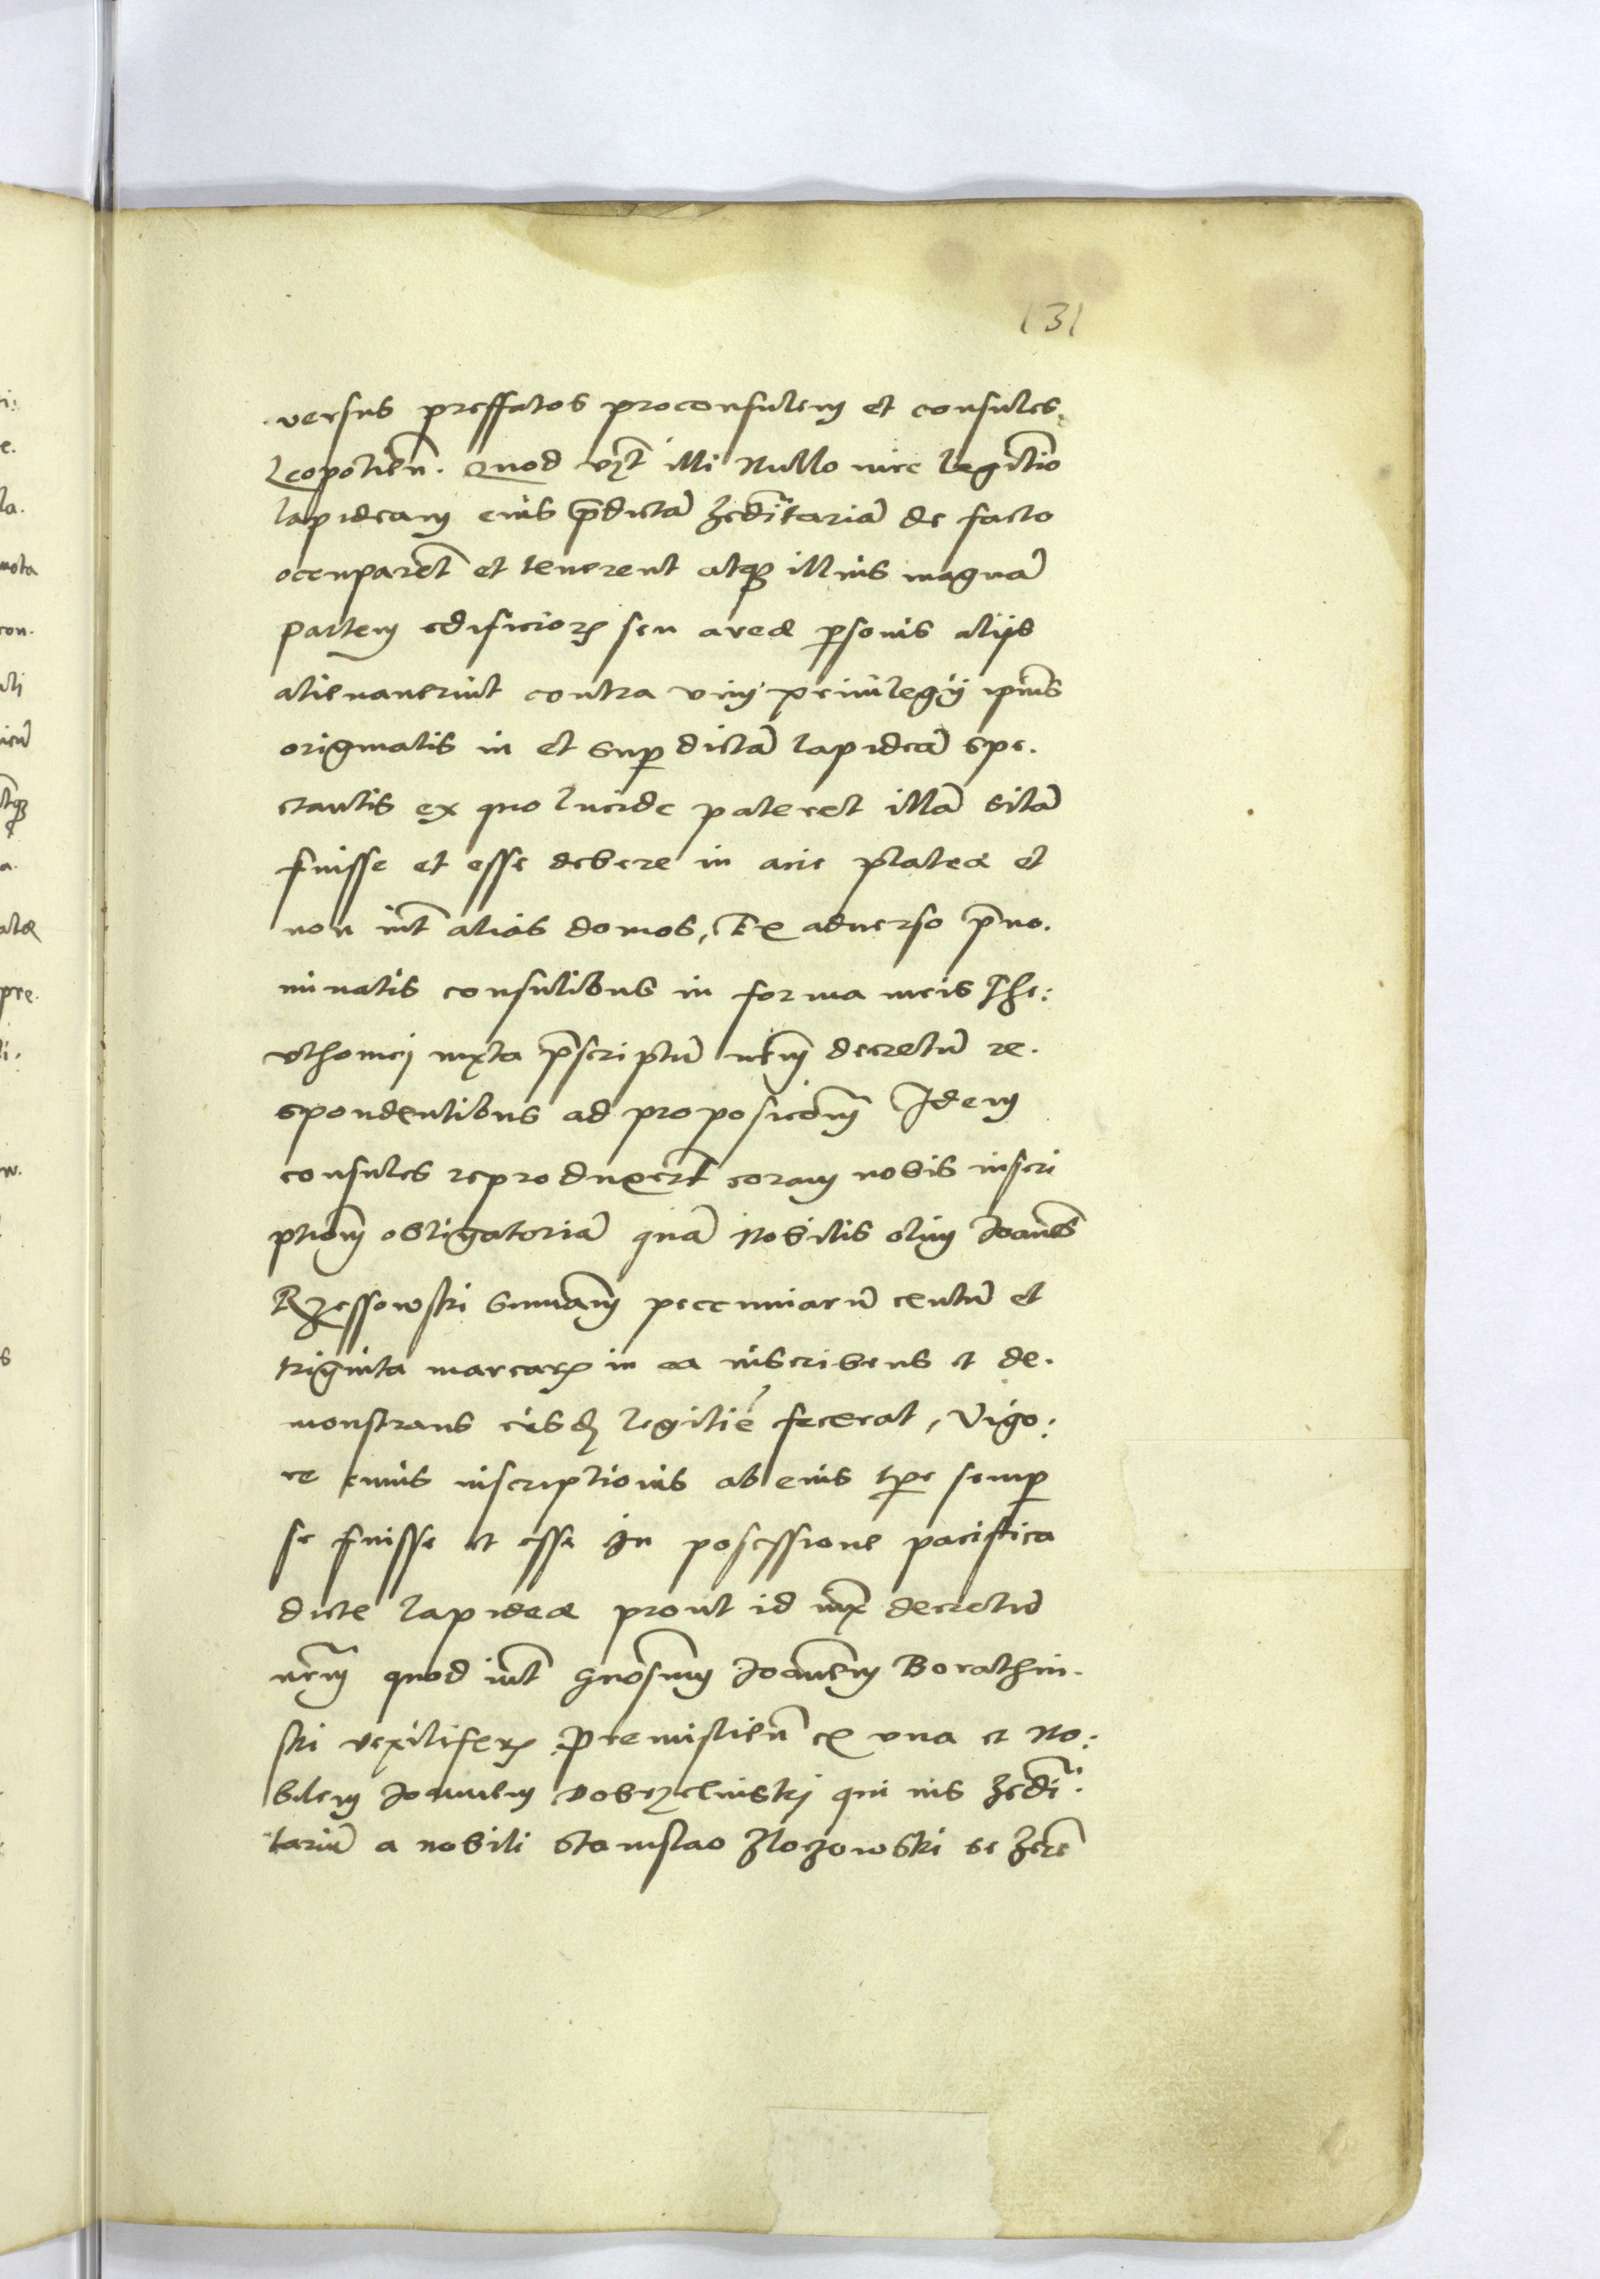 131
versus preffatos proconsulem et consules
Leopolien̄. Quod vz̄t illi Nullo iure legitīo
lapideam eius p̄dictā hedītariā de facto
occuparēt et tenerent atq̨ illius magnā
partem edificioꝝ seu areæ ꝑsonis alijs
alienauerint contra vim priuilegij ip̄ius
originalis in et suꝑ dictā lapideā spe.
ctantis ex quo lucide pateret illā sitā
fuisse et esse debere in acie plateæ et
non int̄ alias domos, Ex aduerso p̄no.
minatis consulibus in forma iuris The:
vthonicj iuxta p̄scriptū nr̄m decretū re.
spondentibus ad proposicōm̄ Idem
consules reproduxerūt coram nobis inscri
ptiom̄ obligatoriā quā Nobilis olim Ioanēs
Rzessowski summam̄ peccuniarū centū et
triginta marcaꝝ in ea inscribens et de.
monstrans eisdē legitīe fecerat, Vigo:
re cuius inscriptionis ab eius tp̄e semꝑ
se fuisse et esse in possessione pacifica
dicte lapideæ prout id iux̄ decretū
nr̄m quod int̄ Gnōsum Ioannem̄ Borathin.
ski vexiliferꝝ Premislien̄ ex vna et No:
bilem Ioannem Dobrzelinskj qui ius hedī:
tariū a nobili Stanislao Zlozowski se hr̄e